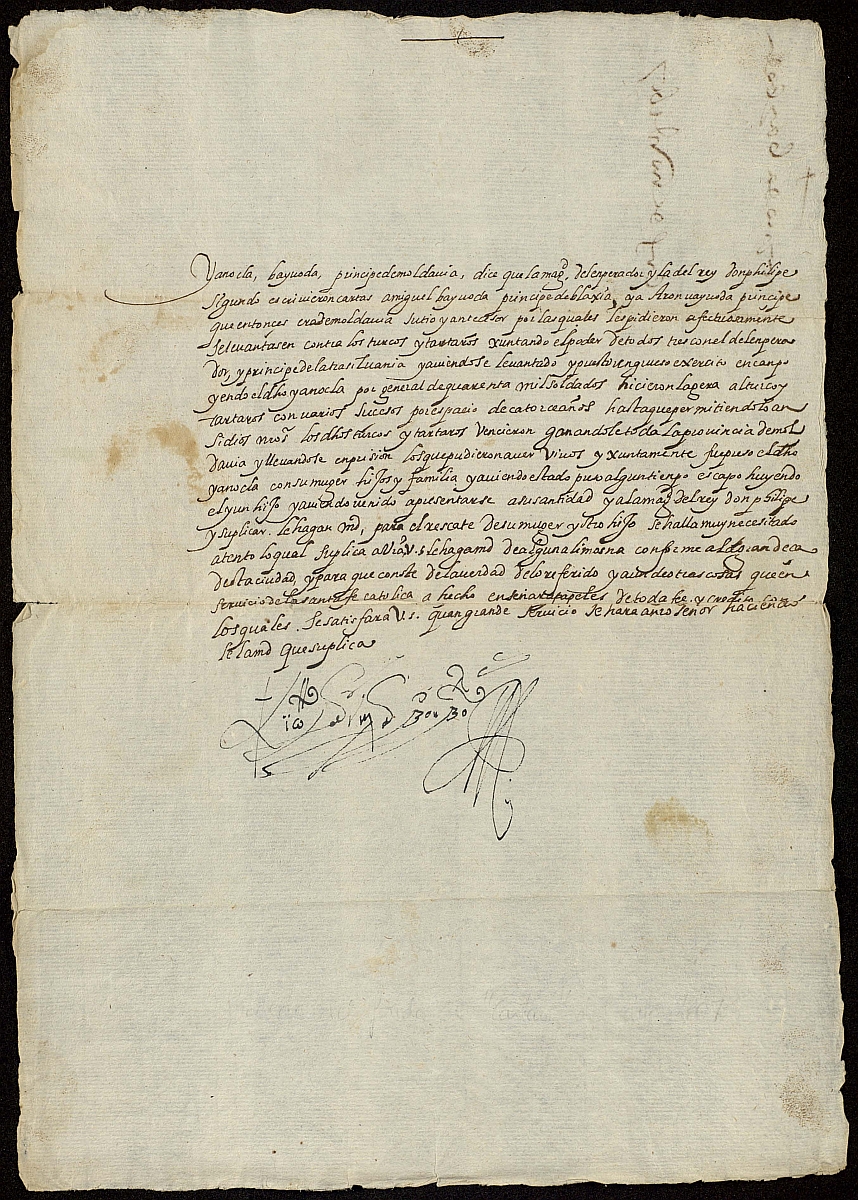 Yanocla, bayuoda, principe de moldauia, dice que la magd. del enperador y la del rey don phelipe
segundo escriuieron cartas a miguel bayuoda principe de blaxia, y a Aron uayuoda principe
que entonces era de moldauia su tio y antecesor por las quales les pidieron afectuosamente
se leuantasen contra los turcos y tartaros xuntando el poder de todos tres con el del enpera
dor, y principe de la trasiluania y auiendose leuantado y puesto en grueso exercito en canpo
yendo el dho yanocla por general de quarenta mil soldados hicieron la gera al turco y
tartaros con varios sucesos por espacio de catorce años hasta que permitiendolo an
si dios nro sr los dhos turcos y tartaros vencieron ganandole toda la prouincia de mol
dauia y lleuandose en prision los que pudieron auer viuos y xuntamente fue preso el dho
yanocla con su muger hijos y familia y auiendo estado preso algun tienpo escapo huyendo
el y un hijo y auiendo uenido a presentarse a su santidad y a la magd del rey don phelipe
y suplicar le hagan md, para el rescate de su muger y otro hijo se halla muy necesitado
atento lo qual suplica a V.s. le haga md de alguna limosna conforme a la grandeca
desta ciudad, y para que conste de la uerdad de lo referido y aun de otras cosas que en
seruicio de la santa fe catolica a hecho enseñara papeles de toda fe y credito
los quales se satisfara V.s. quan grande seruicio se hara a nro señor haciendo
se la md que suplica